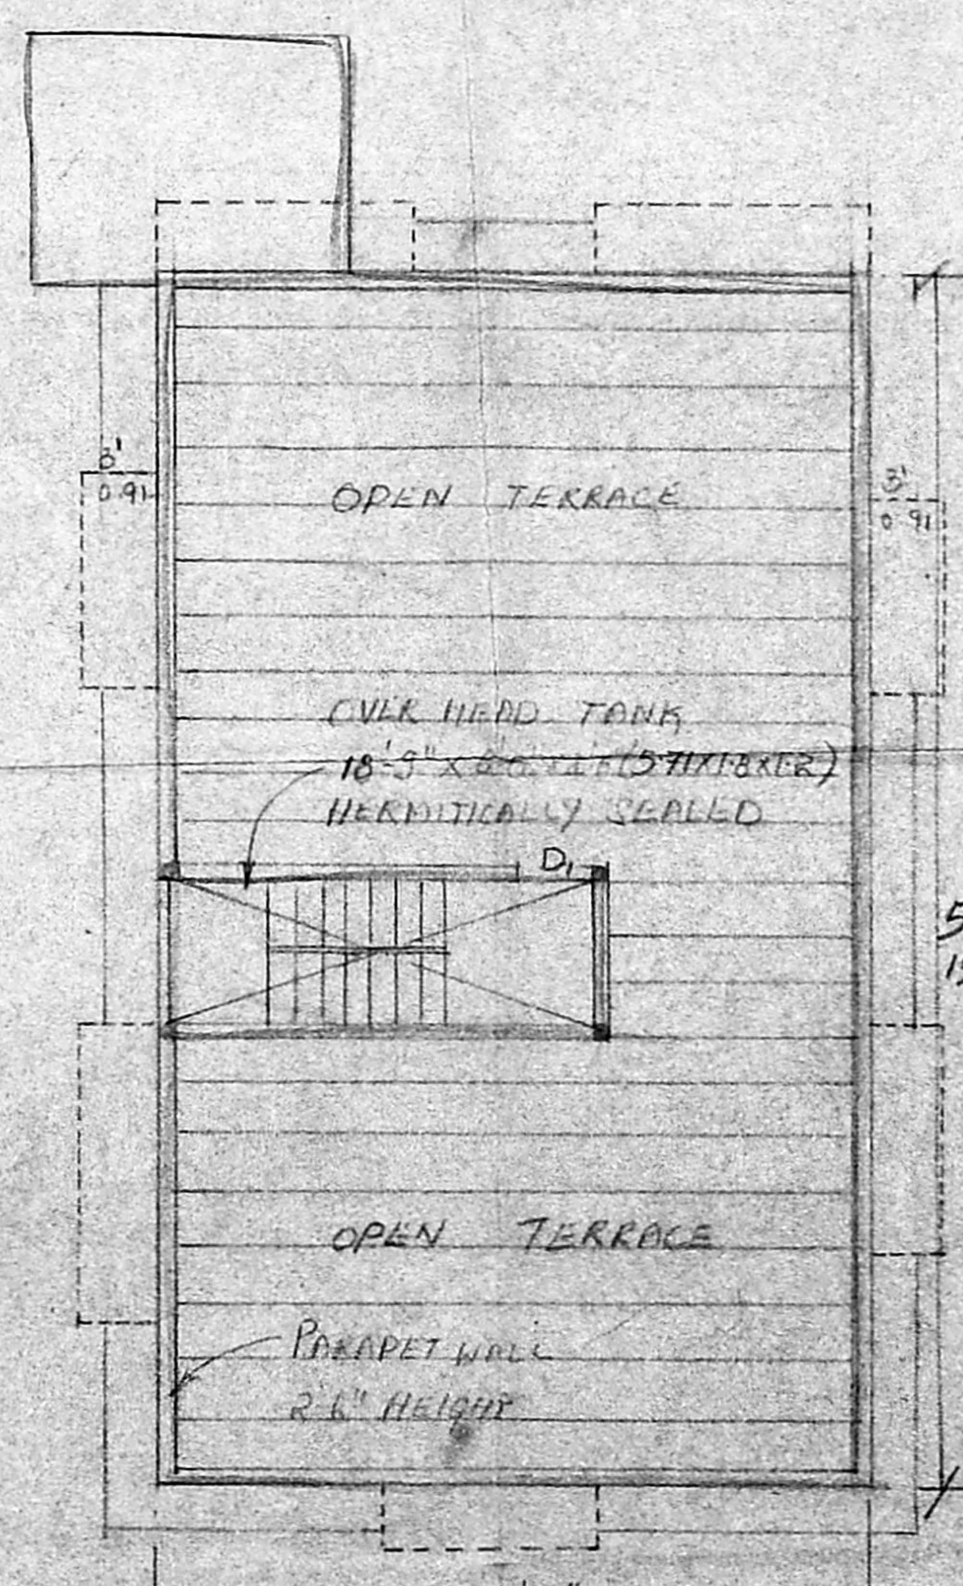 3'
0.91
3'
0.91
OPEN TERRACE
OVER HEAD TANK
18'-9" X (5.71X1.8X1.2)
HERMITICALLY SEALED
D1
OPEN TERRACE
PARAPET WALL
2'6" HEIGHT